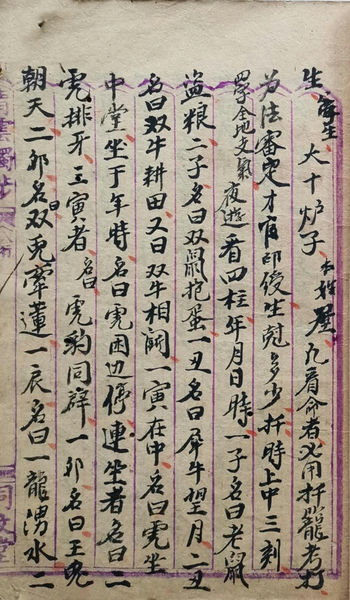 生 大十炉子 凡看命者必用扞籠考打
为法審定才官印綬生尅多少扞時上中三刻
夜遊看四柱年月日時一子名曰老鼠
盗粮二子名曰双鼠抱蛋一丑名曰犀牛望月二丑
名曰双牛耕田又曰双牛相闘一寅在中名曰虎坐
中堂坐于年時名曰虎困边連坐者名曰二
虎排牙三寅者名曰虎豹同群一卯名曰玉兎
朝天二卯名曰双兎牽蓮一辰名曰一龍湧水二